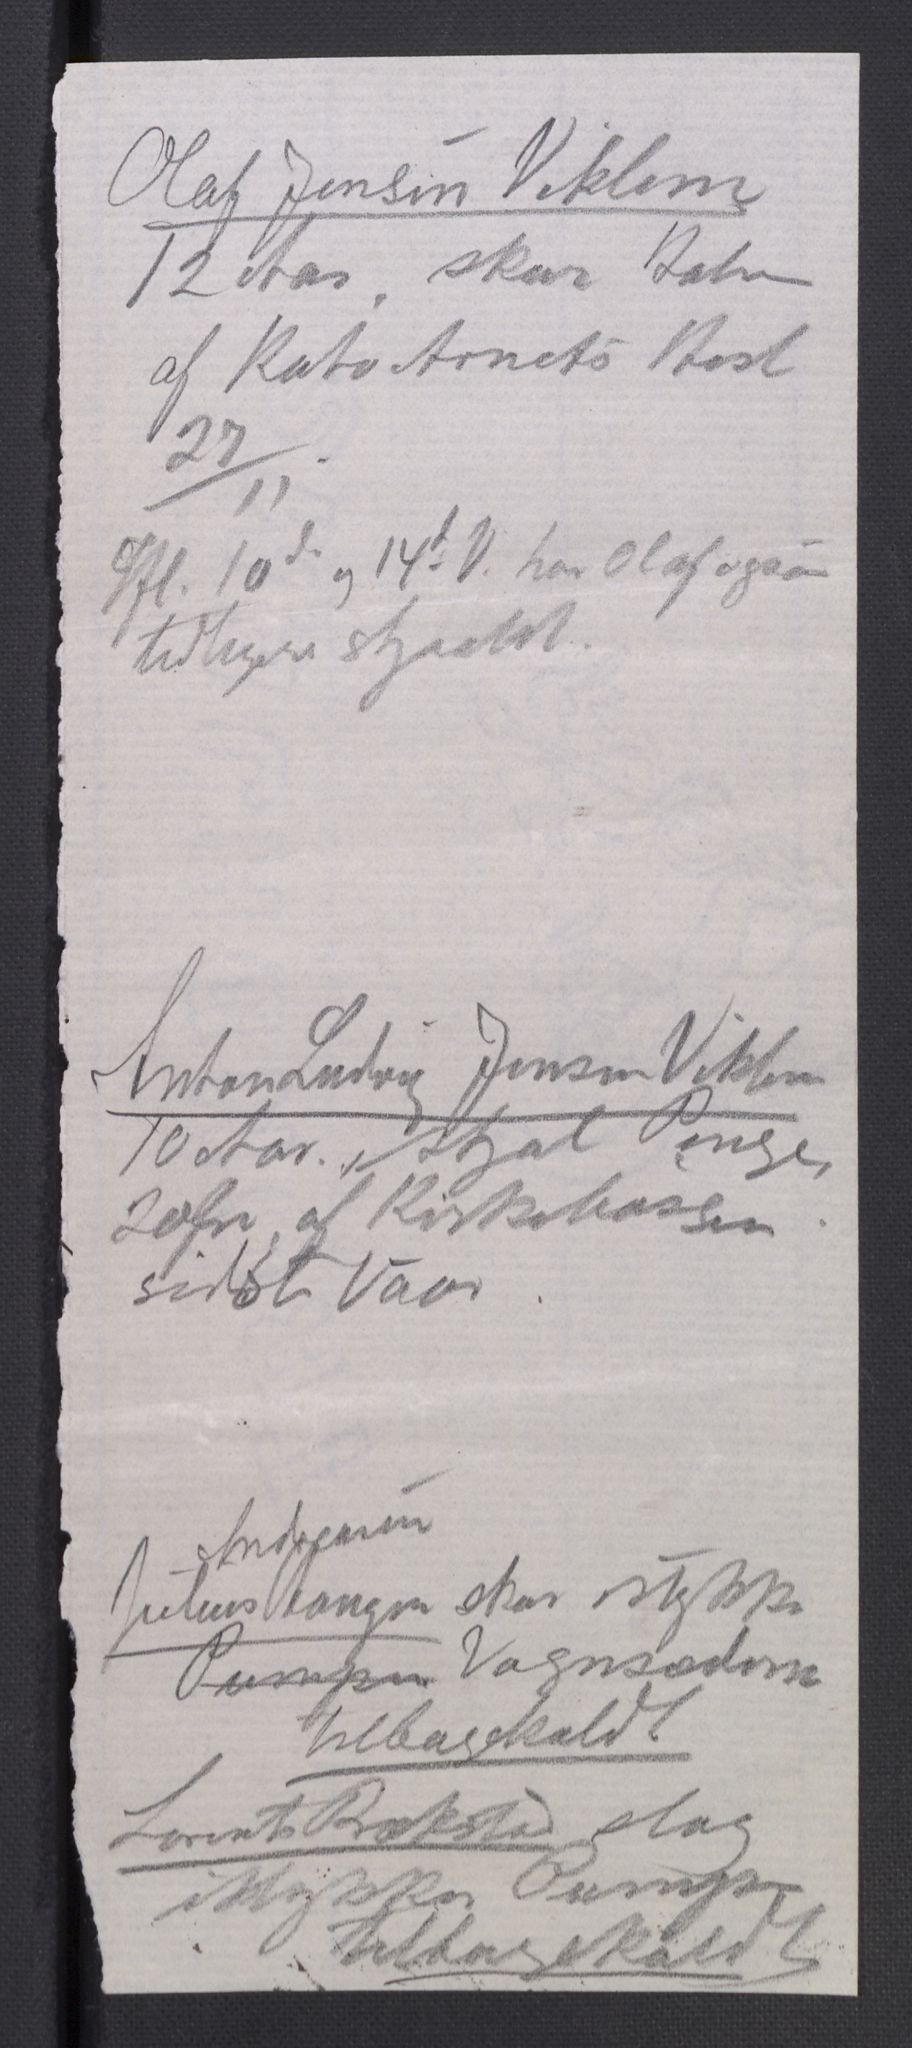 Olaf Jensen Viklem
12 Aar, skar Halen
af Kato Arnets Hest
27/11.
Ifl. 10d. og 14d. V. har Olaf ogsaa
tidligere stjaalet.
Anton Ludvig Jensen Viklem
10 Aar., stjal Penge,
20 kr, af Kirkebøssen.
sidste Vaar.
Andersen
Julius Tangen skar istykker
Pumpen Vognsæderne
tilbagekaldt
Lorents Brækstad slog
istykker Pumpen
tilbagekaldt